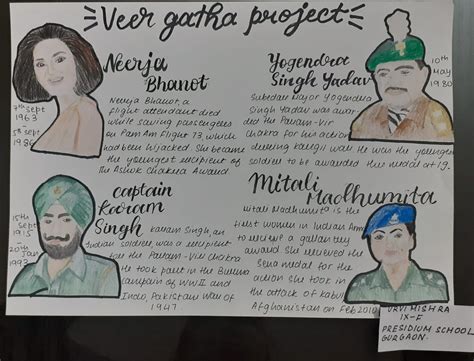 Veer gatha project
Neerja
Bhanot
7th Sept
1963
5th Sept
1986
Neerja Bhanot, a
flight attendant died
while saving passengers
on Pam Am Flight 73, which
had been hijacked. She became
the youngest recipient of
the Ashok Chakra Award
Yogendra
Singh Yadav
10th
May
1980
Subedar Major Yogendra
Singh Yadav was awar-
ded the Param-Vir
chakra for his action
during kargil war. He was the youngest
soldier to be awarded this medal at 19.
captain
Karam
Singh
15th Sept
1915
20th Jan
1993
Karam Singh, an
Indian soldier, was a recipient
of the Param-Vir Chakra
He took part in the Burma
campaign of WWII and
Indo Pakistan War of
1947
Mitali
Madhumita
Mitali Madhumita is the
first women in Indian Army
to receive a gallantry
award She received the
Sena medal for the
action she took in
the attack of kabul
Afghanistan on Feb 2010
URVI MISHRA
IX-F
PRESIDIUM SCHOOL
GURGAON.